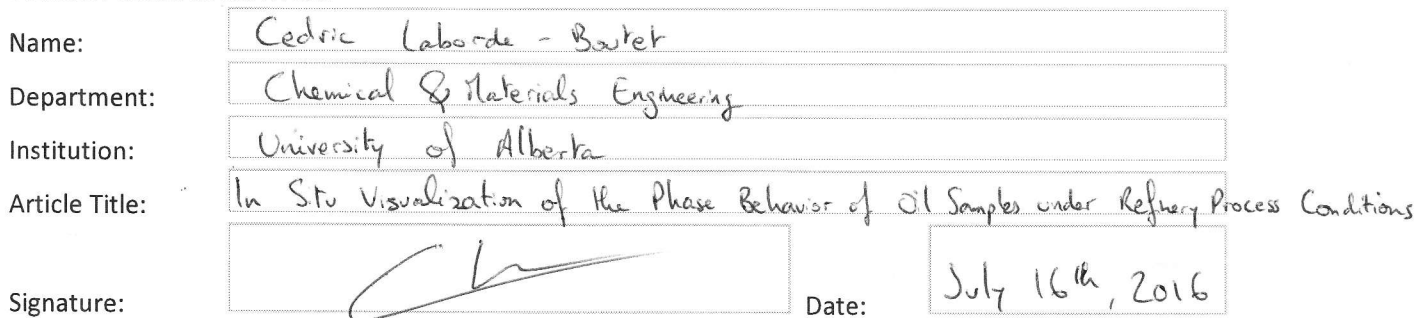 Name: Cedric Laborde - Boutet
Department: Chemical & Materials Engineering
Institution: University of Alberta
Article Title: In Situ Visualization of the Phase Behavior of Oil Samples under Refinery Process Conditions
Signature: Date: July 16th, 2016